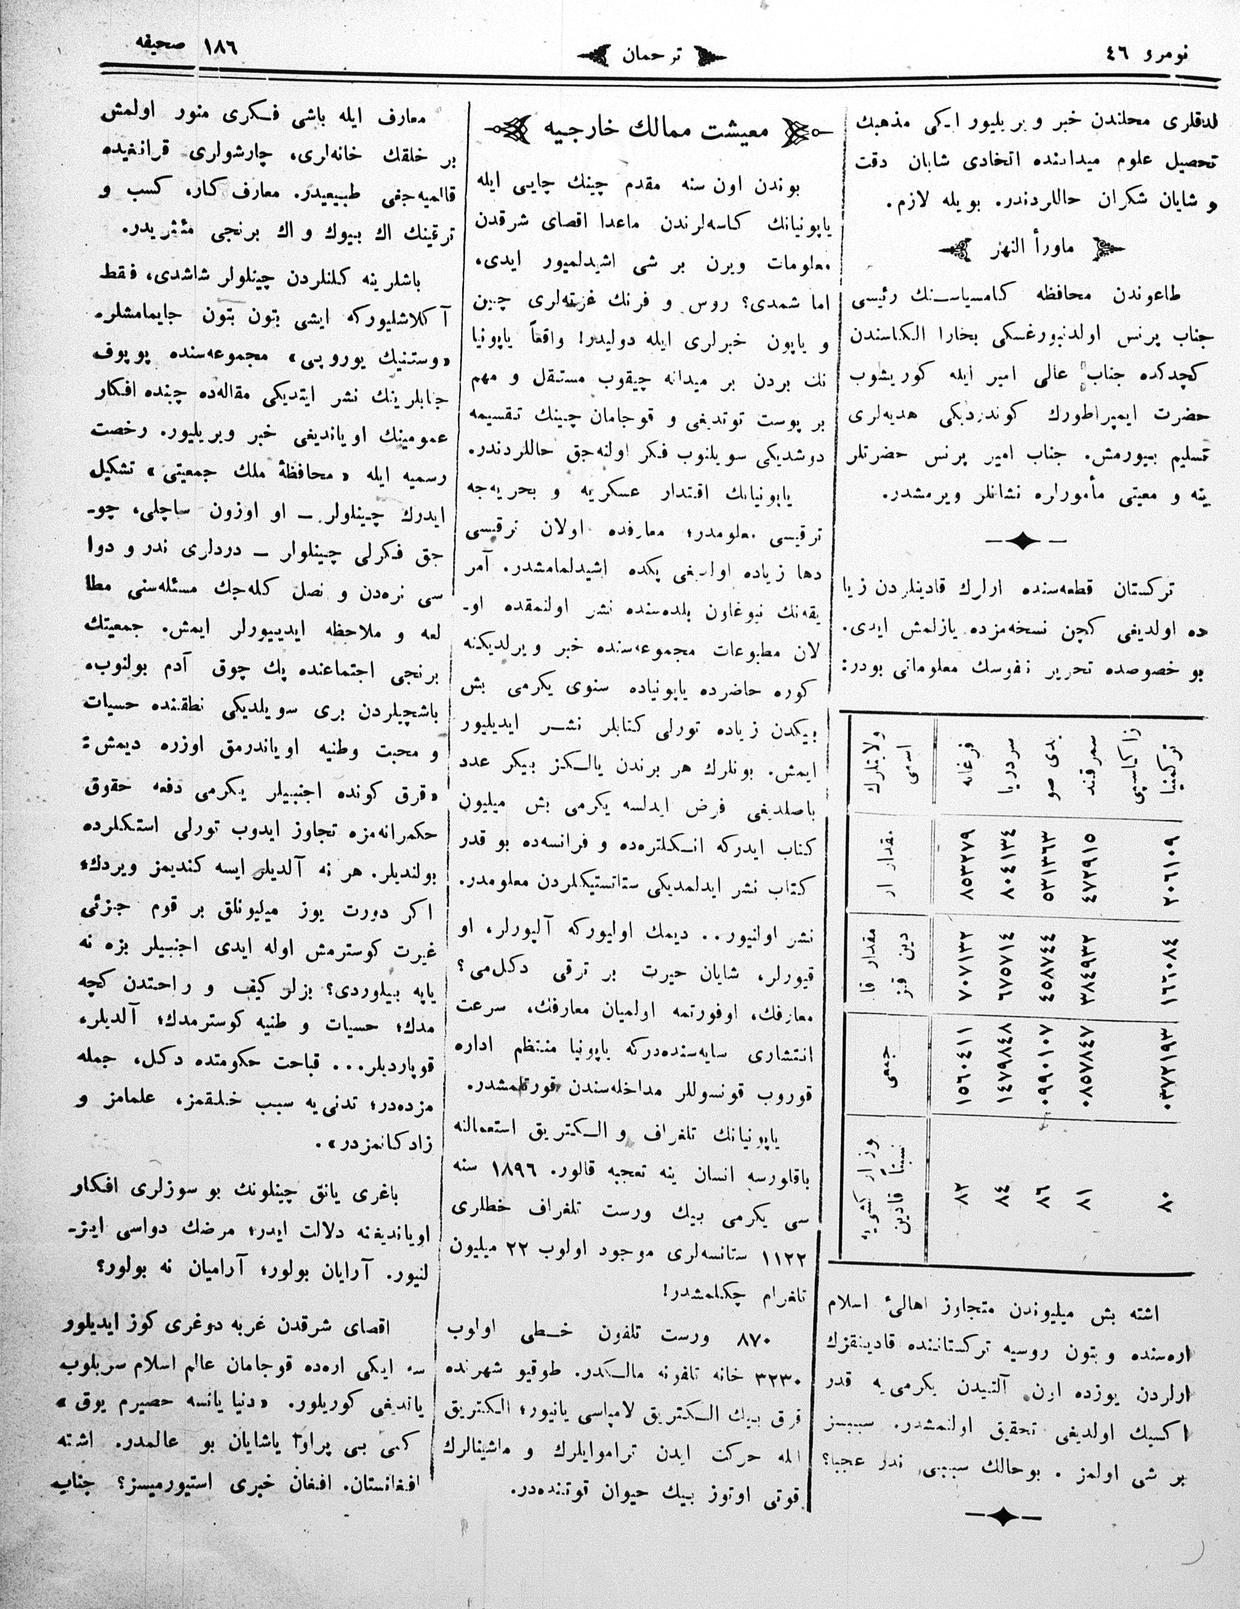 نومرو ٤٦
ترجمان
١٨٦ صحیفه
لدقلری محلندن خبر ویریلیور ایکی مذهبك
تحصیل علوم میداننده اتخادی شایان دقت
و شایان شکران حاللردندر. بویله لازم.
ماورأ النهر
طاعوندن محافظه کامسیاسنك رئیسی
جناب پرنس اولدنبورغسکی بخارا الکاسندن
کچدکده جناب عالی امیر ایله کوریشوب
حضرت ایمپراطورك کوندردیکی هدیه‌لری
تسلیم بیورمش. جناب امیر پرنس حضرتلر
ینه و معیتی مأمورلره نشانلر ویرمشدر.
ترکستان قطعه‌سنده ارلرك قادینلردن زیا
ده اولدیغی کچن نسخه‌مزده یازلمش ایدی.
بو خصوصده تحریر نفوسك معلوماتی بودر:
ولایتلرك اسمی
فرغانه
سردریا
یدی صو
سمرقند
ترکمنیا
مقدار ار
٨٥٣٢٧٩
٨٠٤١٣٤
٥٣١٣٦٣
٤٧٢٩١٥
٢٠٦١٠٩
مقدار قا دین قیز
٧٠٧١٣٢
٦٧٥٧١٤
٤٥٨٧٤٤
٣٨٤٩٣٢
١٦٦٠٨٤
جمعی
١٥٦٠٤١١
١٤٧٩٨٤٨
٠٩٩٠١٠٧
٠٨٥٧٨٤٧
٠٣٧٢١٩٣
٨٢
٨٤
٨٦
٨١
٨٠
اشته بش میلیوندن متجاوز اهالئ اسلام
اره‌سنده و بتون روسیه ترکستاننده قادینقزك
ارلردن یوزده اون آلتیدن یکرمی‌یه قدر
اکسك اولدیغی تحقیق اولنمشدر. سببسز
بر شی اولمز. بوحالك سببی ندر عجبا؟
معیشت ممالك خارجیه
بوندن اون سنه مقدم چینك چایی ایله
یاپونیانك کاسه‌لرندن ماعدا اقصای شرقدن
معلومات ویرن بر شی اشیدلمیور ایدی.
اما شمدی؟ روس و فرنك غزته‌لری چین
و یاپون خبرلری ایله دولیدر! واقعاً یاپونیا
نك بردن بر میدانه چیقوب مستقل و مهم
بر پوست توتدیغی و قوجامان چینك تقسیمه
دوشدیکی سویلنوب فکر اولنه‌جق حاللردندر.
یاپونیانك اقتدار عسکریه و بحریه‌جه
ترقیسی معلومدر؛ معارفده اولان ترقیسی
دها زیاده اولدیغی پکده اشیدلمامشدر. آمر
یقه‌نك نیوغاون بلده‌سنده نشر اولنمقده او‍
لان مطبوعات مجموعه‌سنده خبر ویرلدیکنه
کوره حاضرده یاپونیاده سنوی یکرمی بش
بیکدن زیاده تورلی کتابلر نشر ایدیلیور
ایمش. بونلرك هر برندن یالکز بیکر عدد
باصلدیغی فرض ایدلسه یکرمی بش میلیون
کتاب ایدرکه انکلتره‌ده و فرانسه‌ده بو قدر
کتاب نشر ایدلمدیکی ستاتستیکلردن معلومدر.
نشر اولنیور.. دیمك اولیورکه آلیورلر، او
قیورلر، شایان حیرت بر ترقی دکل‌می؟
معارفك، اوفورتمه اولمیان معارفك، سرعت
انتشاری سایه‌سنده‌درکه یاپونیا منتظم اداره
قوروب قونسوللر مداخله‌سندن قورتلمشدر.
یاپونیانك تلغراف و الکتریق استعمالنه
باقلورسه انسان ینه تعجبه قالور. ١٨٩٦ سنه
سی یکرمی بیك ورست تلغراف خطلری
١١٢٢ ستانسه‌لری موجود اولوب ٢٢ میلیون
تلغرام چکلمشدر!
٨٧٠ ورست تلفون خطی اولوب
٣٢٣٠ خانه تلفونه مالکدر. طوقیو شهرنده
قرق بیك الکتریق لامپاسی یانیور؛ الکتریق
ایله حرکت ایدن تراموایلرك و ماشینالرك
قوتی اوتوز بیك حیوان قوتنده‌در.
معارف ایله باشی فکری منور اولمش
بر خلقك خانه‌لری، چارشولری قرانغیده
قالمیه‌جغی طبیعیدر. معارف کار، کسب و
ترقینك اك بیوك و اك برنجی مئثریدر.
باشلرینه کلنلردن چینلولر شاشدی، فقط
آکلاشلیورکه ایشی بتون بتون جایمامشلر.
«وستنیك یوروپی» مجموعه‌سنده پوپوف
جنابلرینك نشر ایتدیکی مقاله‌ده چینده افکار
عمومینك اویاندیغی خبر ویریلیور. رخصت
رسمیه ایله «محافظهٔ ملك جمعیتی» تشکیل
ایدرك چینلولر — او اوزون ساچلی، چو‍
جق فکرلی چینلولر — دردلری ندر و دوا
سی نره‌دن و نصل کله‌جك مسئله‌سنی مطا
لعه و ملاحظه ایدییورلر ایمش. جمعیتك
برنجی اجتماعنده پك چوق آدم بولنوب،
باشچیلردن بری سویلدیکی نطقنده حسیات
و محبت وطنیه اویاندرمق اوزره دیمش:
«قرق کونده اجنبیلر یکرمی دفعه حقوق
حکمرانه‌مزه تجاوز ایدوب تورلی استکلرده
بولندیلر. هر نه آلدیلر ایسه کندیمز ویردك؛
اکر دورت یوز میلیونلق بر قوم جزئی
غیرت کوسترمش اوله ایدی اجنبیلر بزه نه
یاپه بیلوردی؟ بزلر کیف و راحتدن کچه
مدك؛ حسیات وطنیه کوسترمدك؛ آلدیلر،
قوپاردیلر... قباحت حکومتده دکل، جمله
مزده‌در؛ تدنی‌یه سبب خلقمز، علمامز و
زادکانمزدر».
باغری یانق چینلونك بو سوزلری افکار
اویاندیغنه دلالت ایدر؛ مرضك دواسی ایز‍
لنیور. آرایان بولور؛ آرامیان نه بولور؟
اقصای شرقدن غربه دوغری کوز ایدیلور
سه ایکی اره‌ده قوجامان عالم اسلام سریلوب
یاتدیغی کوریلور. «دنیا یانسه حصیرم یوق»
کبی بی پروا یاشایان بو عالمدر. اشته
افغانستان. افغان خبری استیورمیسز؟ جناب